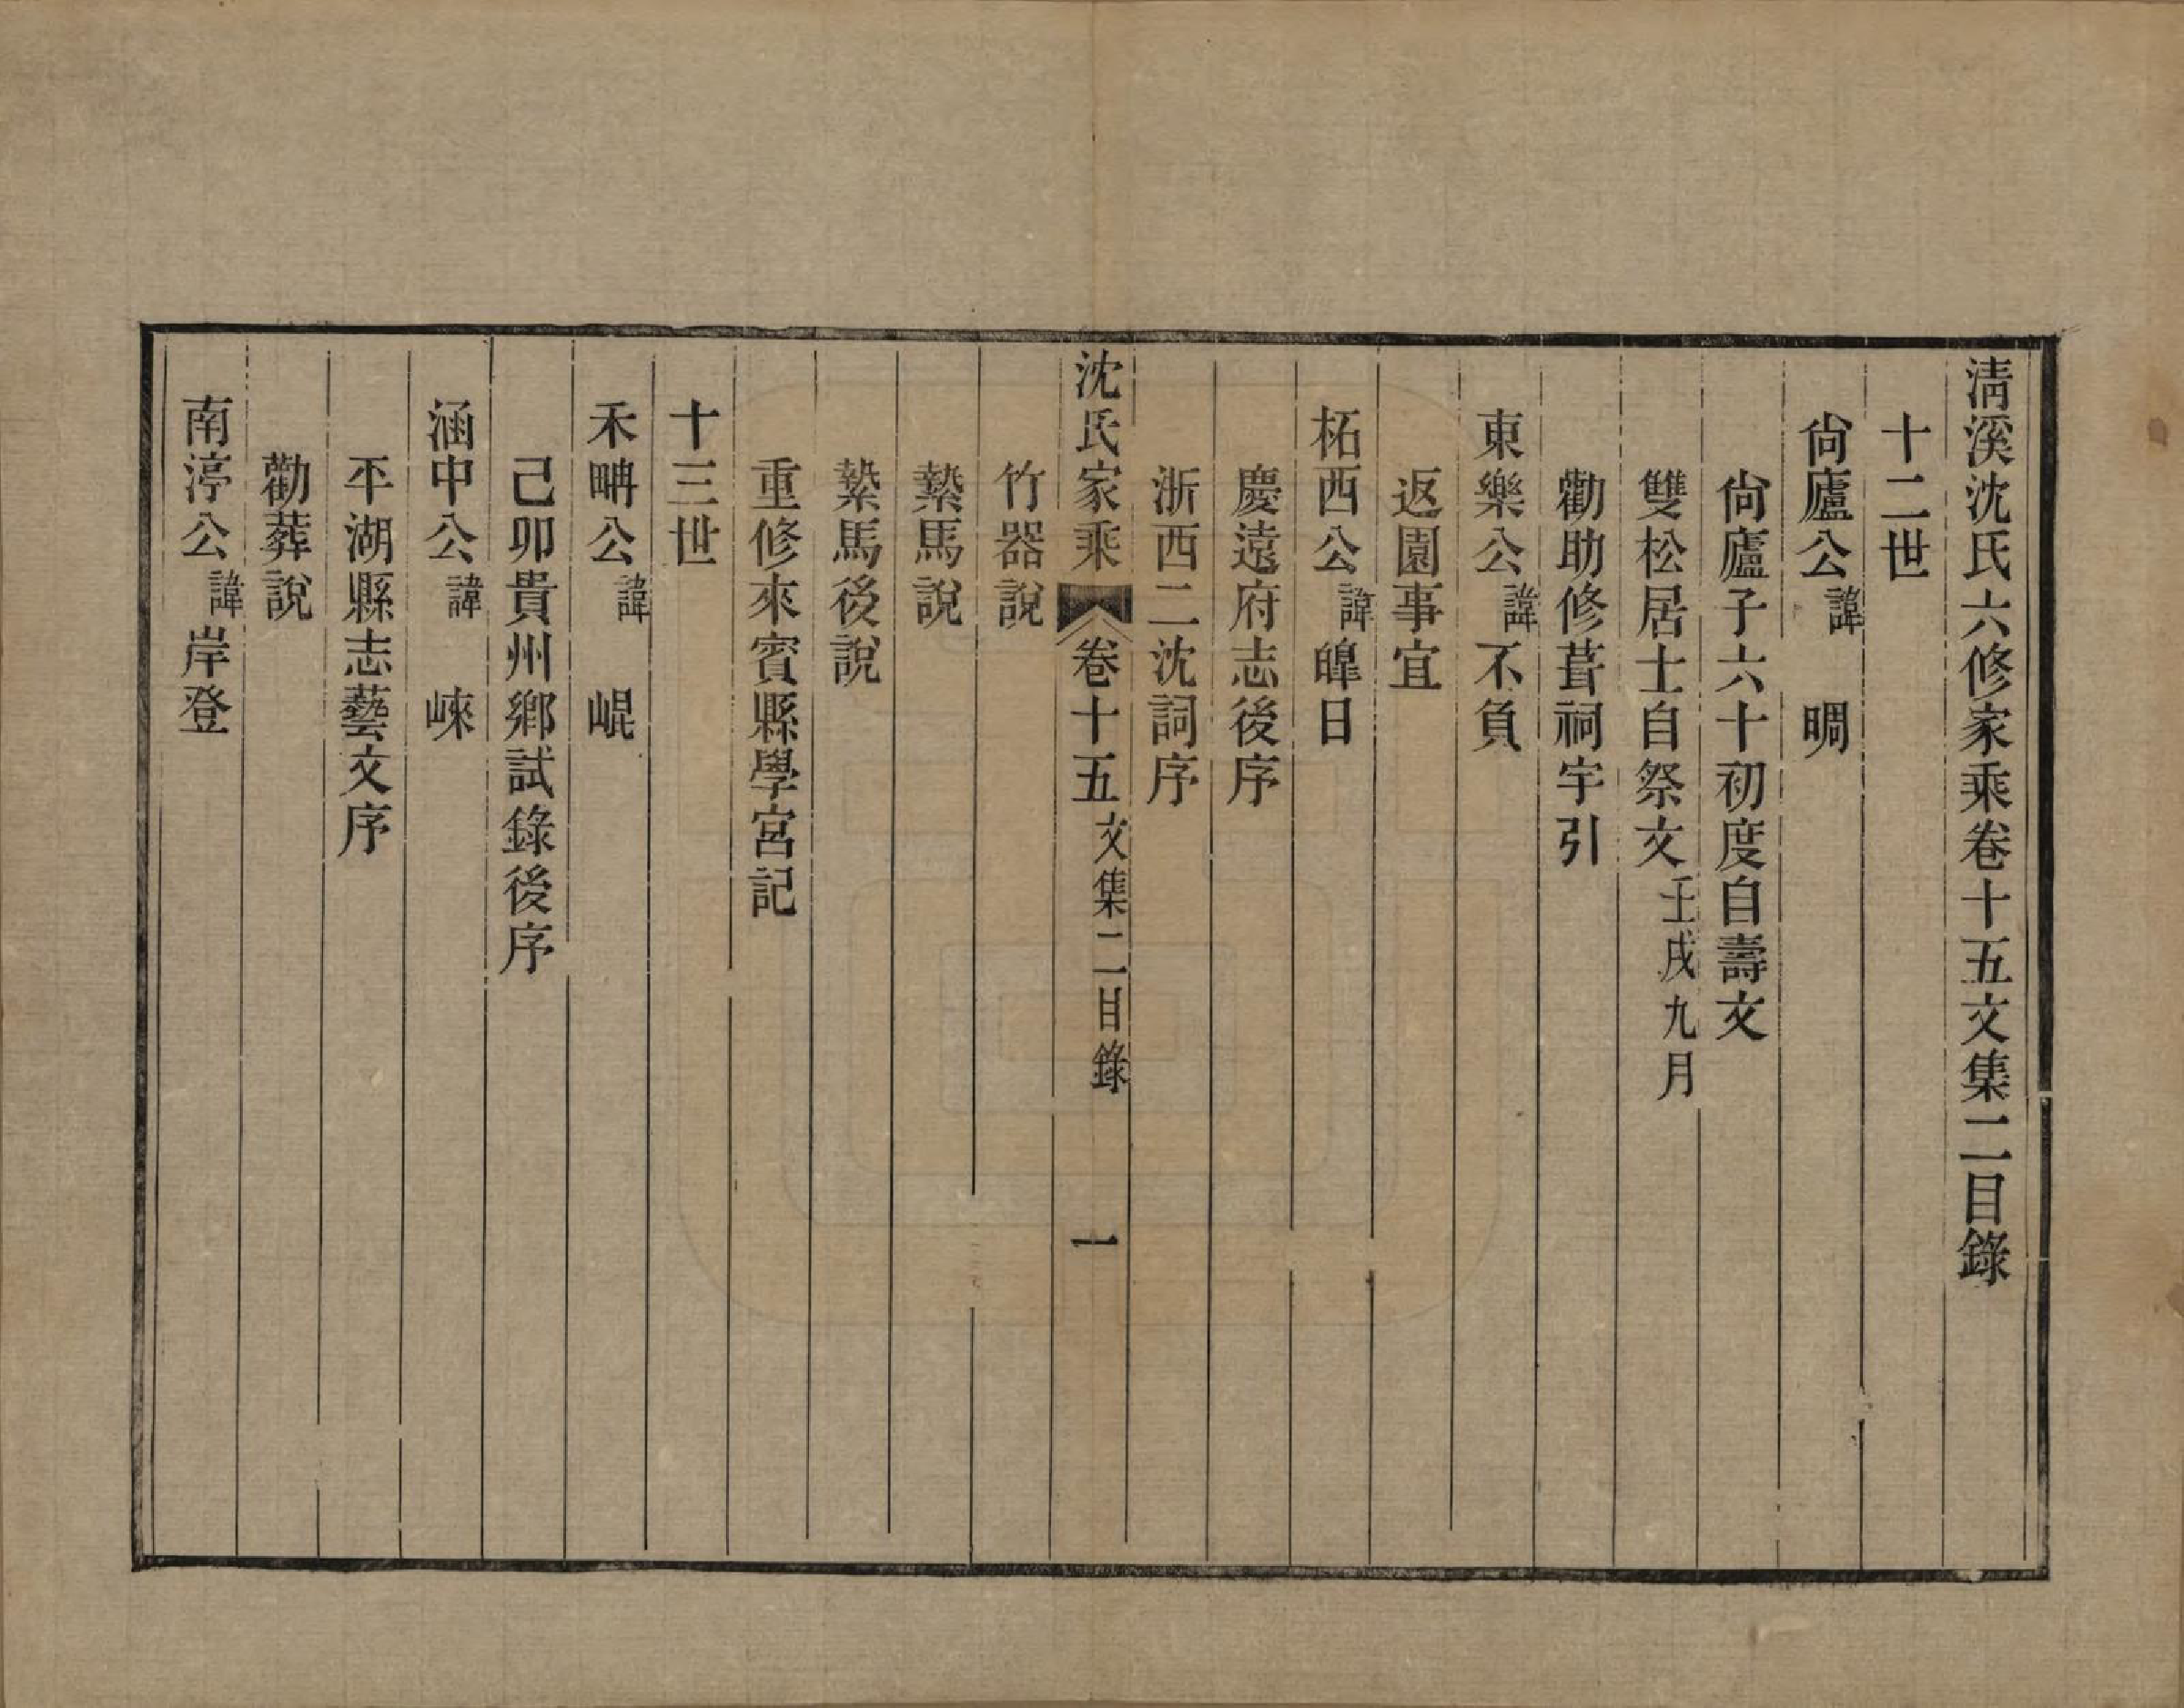 淸溪沈氏六修家乘卷十五文集二目錄
十二世
尙廬公諱 晭
尙廬子六十初度自壽文
雙松居士自祭文壬戌九月
勸助修葺祠宇引
東樂公諱不負
返園事宜
柘西公諱皥日
慶遠府志後序
浙西二沈詞序
沈氏家乘 卷十五 文集二目錄 一
竹器說
縶馬說
縶馬後說
重修來賓縣學宮記
十三世
禾疄公諱 崐
己卯貴州鄉試錄後序
涵中公諱 崍
平湖縣志藝文序
勸葬說
南渟公諱岸登